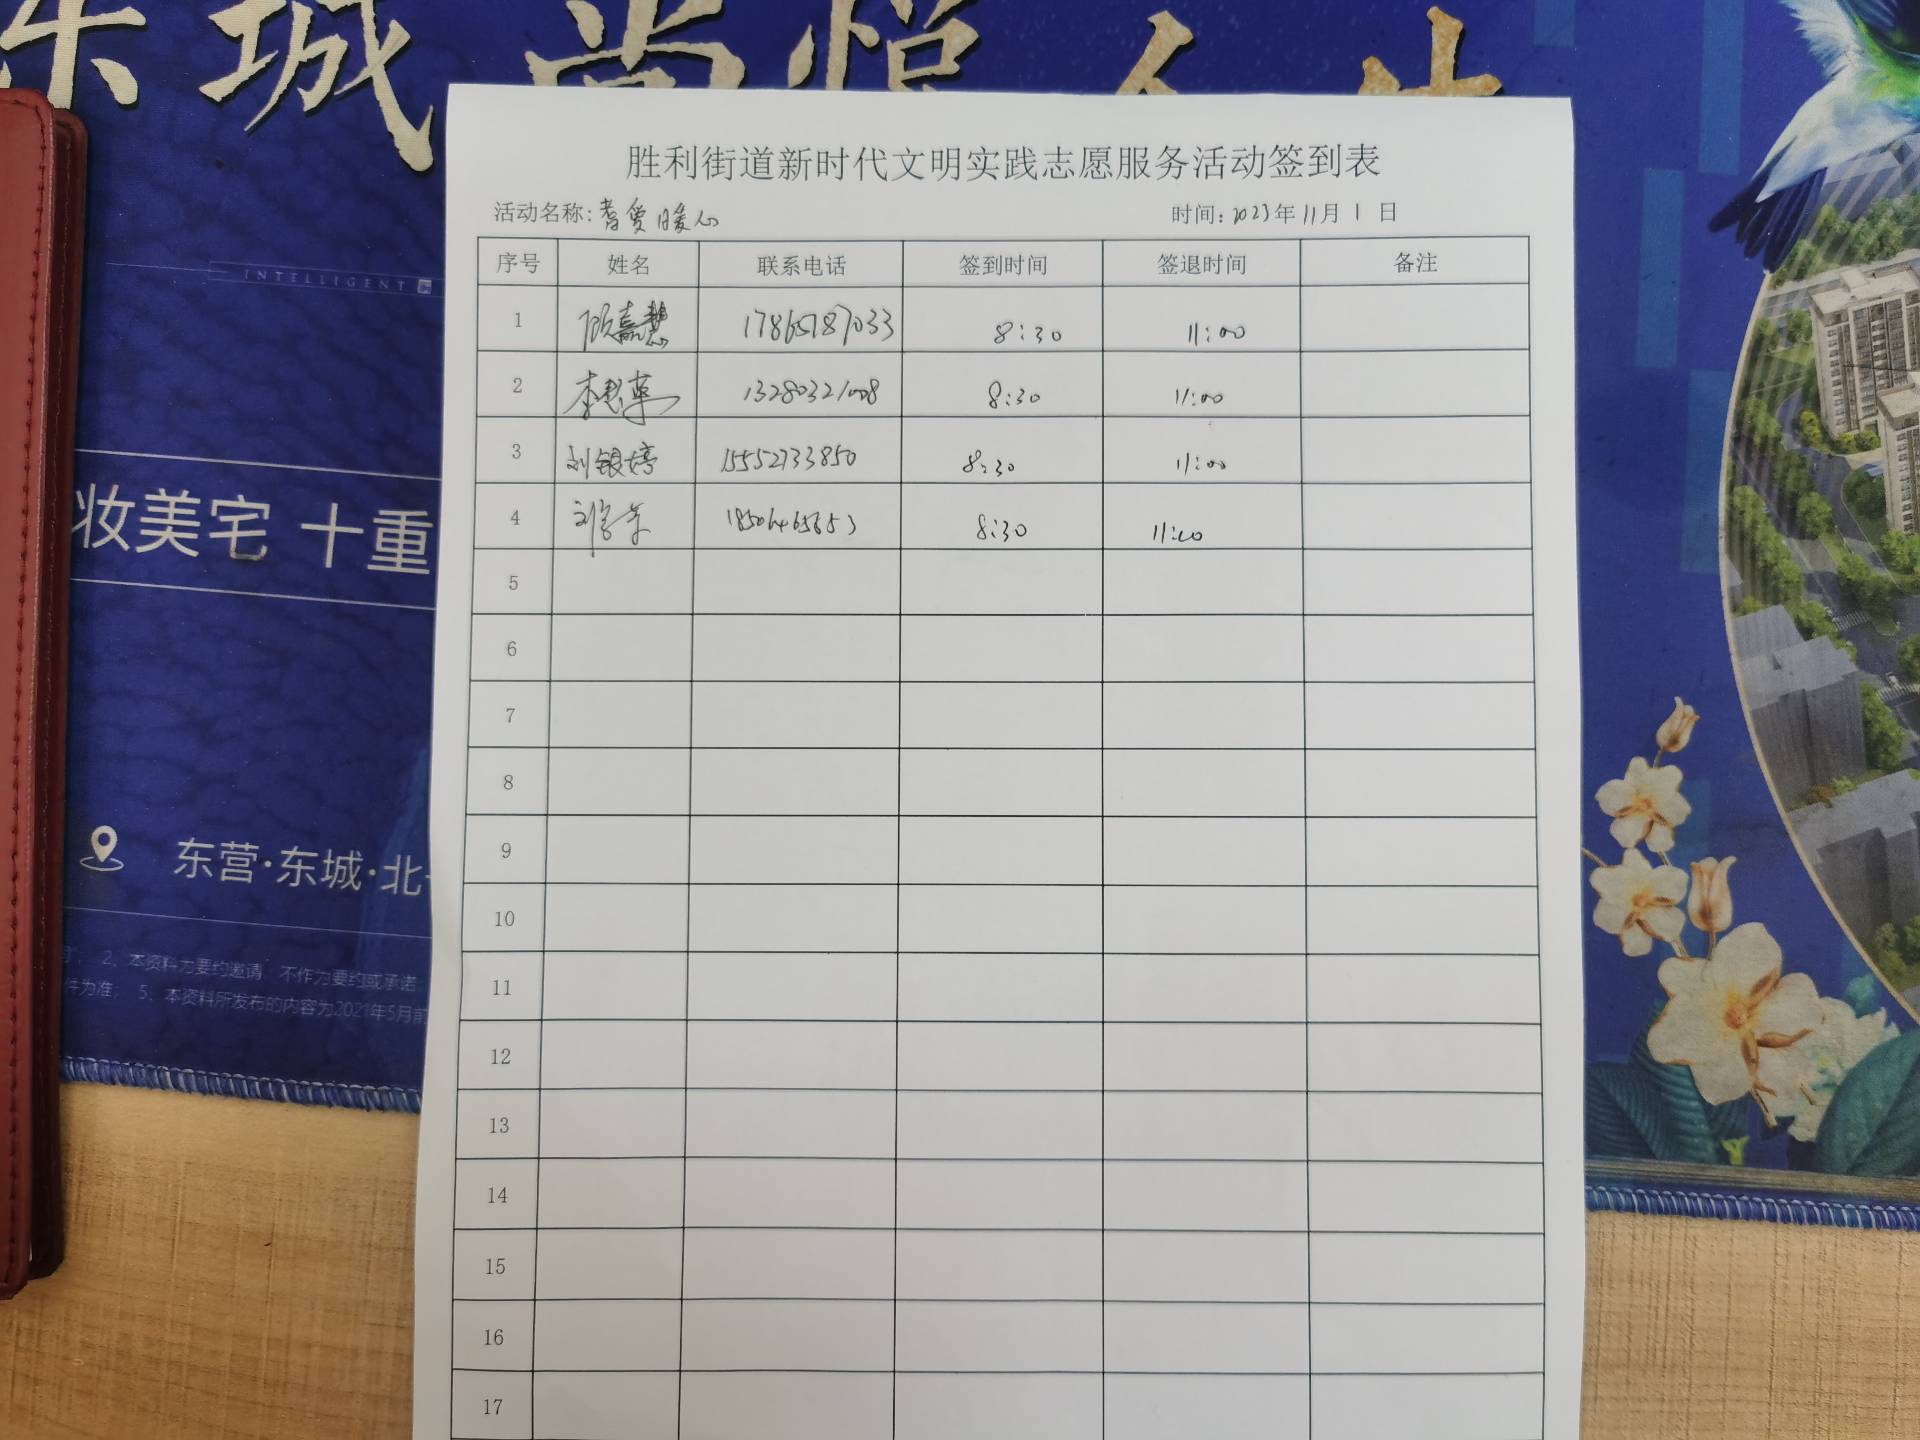 东城 尚悦人生
INTELLIGENT
妆美宅 十重
东营·东城·北
2、本资料为要约邀请 不作为要约或承诺
件为准； 5、本资料所发布的内容为2021年5月前
胜利街道新时代文明实践志愿服务活动签到表
活动名称: 耆爱暖心 时间: 2023年11月1日
序号 姓名 联系电话 签到时间 签退时间 备注
1 顾嘉慧 17865187033 8:30 11:00
2 13280321008 8:30 11:00
3 刘银婷 15552733850 8:30 11:00
4 8:30 11:00
5
6
7
8
9
10
11
12
13
14
15
16
17